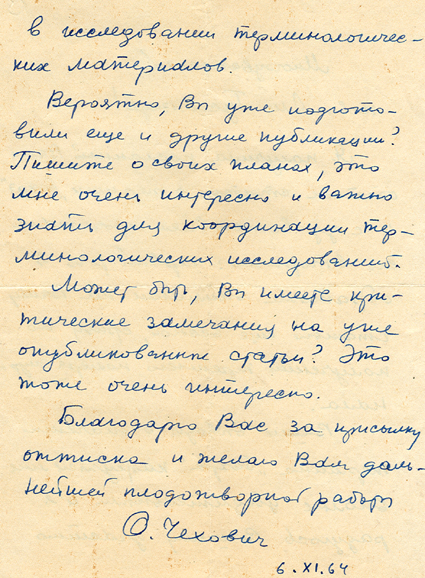 в исследовании терминологичес-
ких материалов.
Вероятно, Вы уже подгото-
вили еще и другие публикации?
Пишите о своих планах, это
мне очень интересно и важно
знать для координации тер-
минологических исследований.
Может быть, Вы имеете кри-
тические замечания на уже
опубликованные статьи? Это
тоже очень интересно.
Благодарю Вас за присылку
оттиска и желаю Вам даль-
нейшей плодотворной работы
О. Чехович
6.XI.64